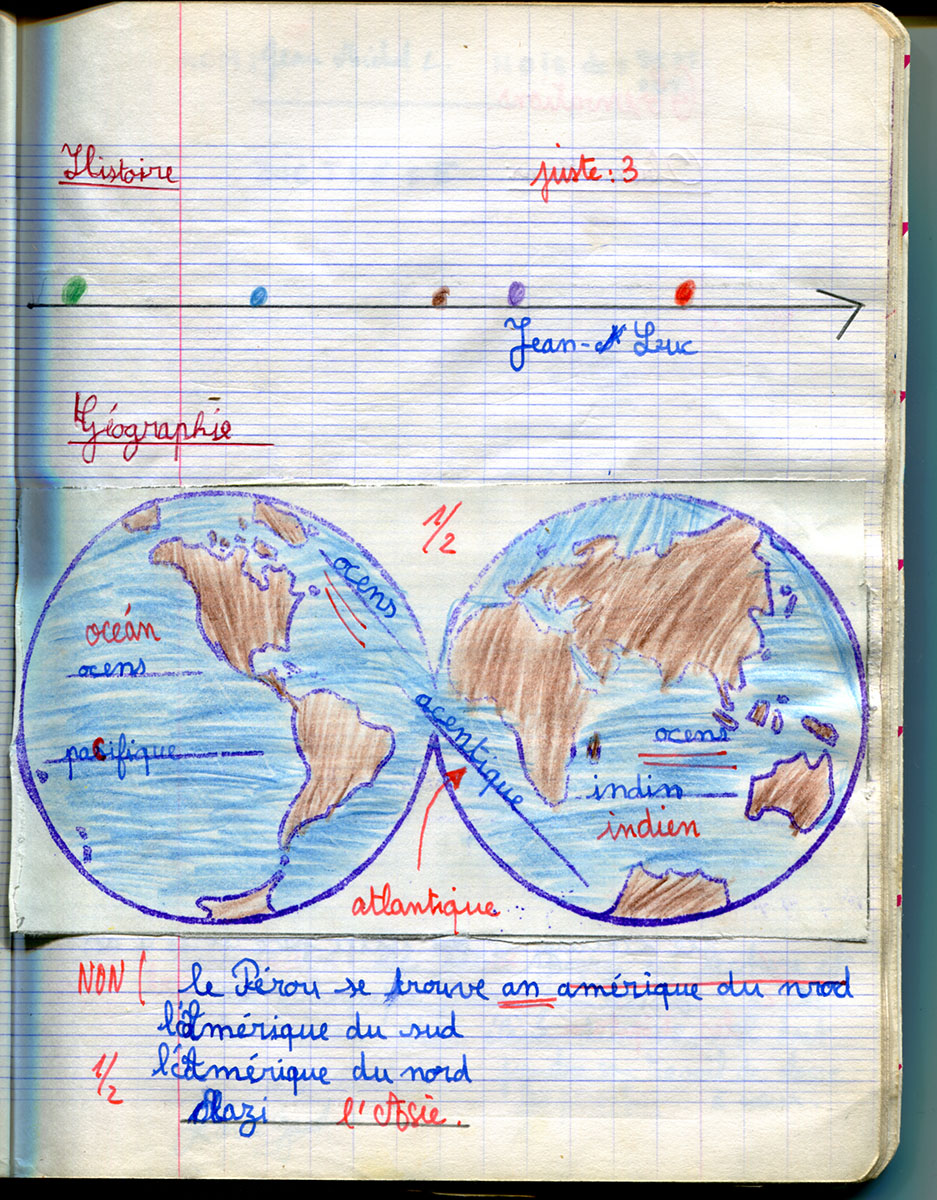 Histoire
juste : 3
Jean-Luc
Géographie
1/2
ocens
océan
ocens
pacifique
acentique
ocens
indin
indien
atlantique
NON ! le Pérou se trouve an amérique du nrod
l'Amérique du sud
1/2 l'Amérique du nord
l'Asie.